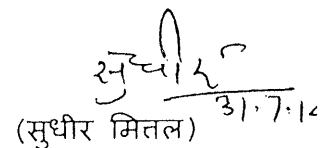 सुधीर
31.7.14
(सुधीर मितल)